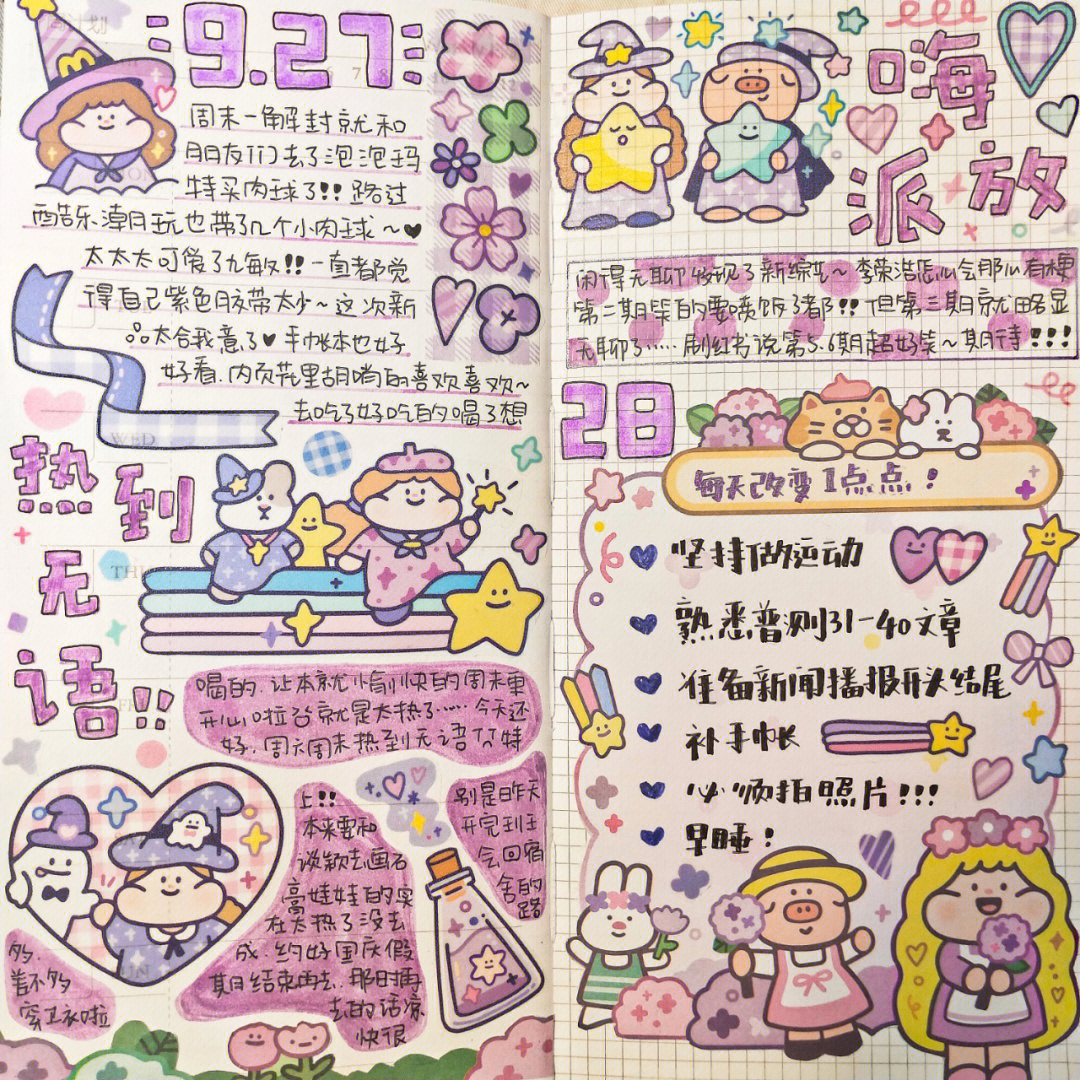 9.27
周末一解封就和
朋友们去了泡泡玛
特买肉球了!! 路过
酷乐潮玩也带了几个小肉球~♥
太太太可爱了九敏!! 一直都觉
得自己紫色胶带太少~ 这次新
品太合我意了♥ 手帐本也好
好看. 内页花里胡哨的喜欢喜欢~
去吃了好吃的喝了想
热到
无
语!!
喝的. 让本就愉快的周末更
开心啦谷就是太热了...... 今天还
好. 周六周末热到无语 特
别是昨天
开完班主
会回宿
舍的
路
上!!
本来要和
谈颖去画石
膏娃娃的实
在太热了没去
成. 约好国庆假
期结束再去. 那时再
去的话凉
快很
多.
差不多
穿卫衣啦
嗨
派放
闲得无聊发现了新综艺~ 李荣浩怎么会那么有梗
第二期笑的要喷饭了都!! 但第三期就略显
无聊了...... 刷红书说第5.6期超好笑~ 期待!!!
28
每天改变1点点!
坚持做运动
熟悉普测31-40文章
准备新闻播报开头结尾
补手帐
必须拍照片!!!
早睡!